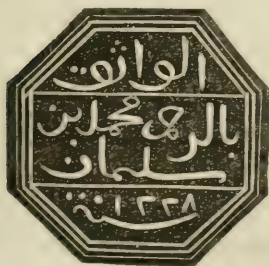 الواثق
بالرحمن محمد بن
سليمان
سنة ١٢٢٨